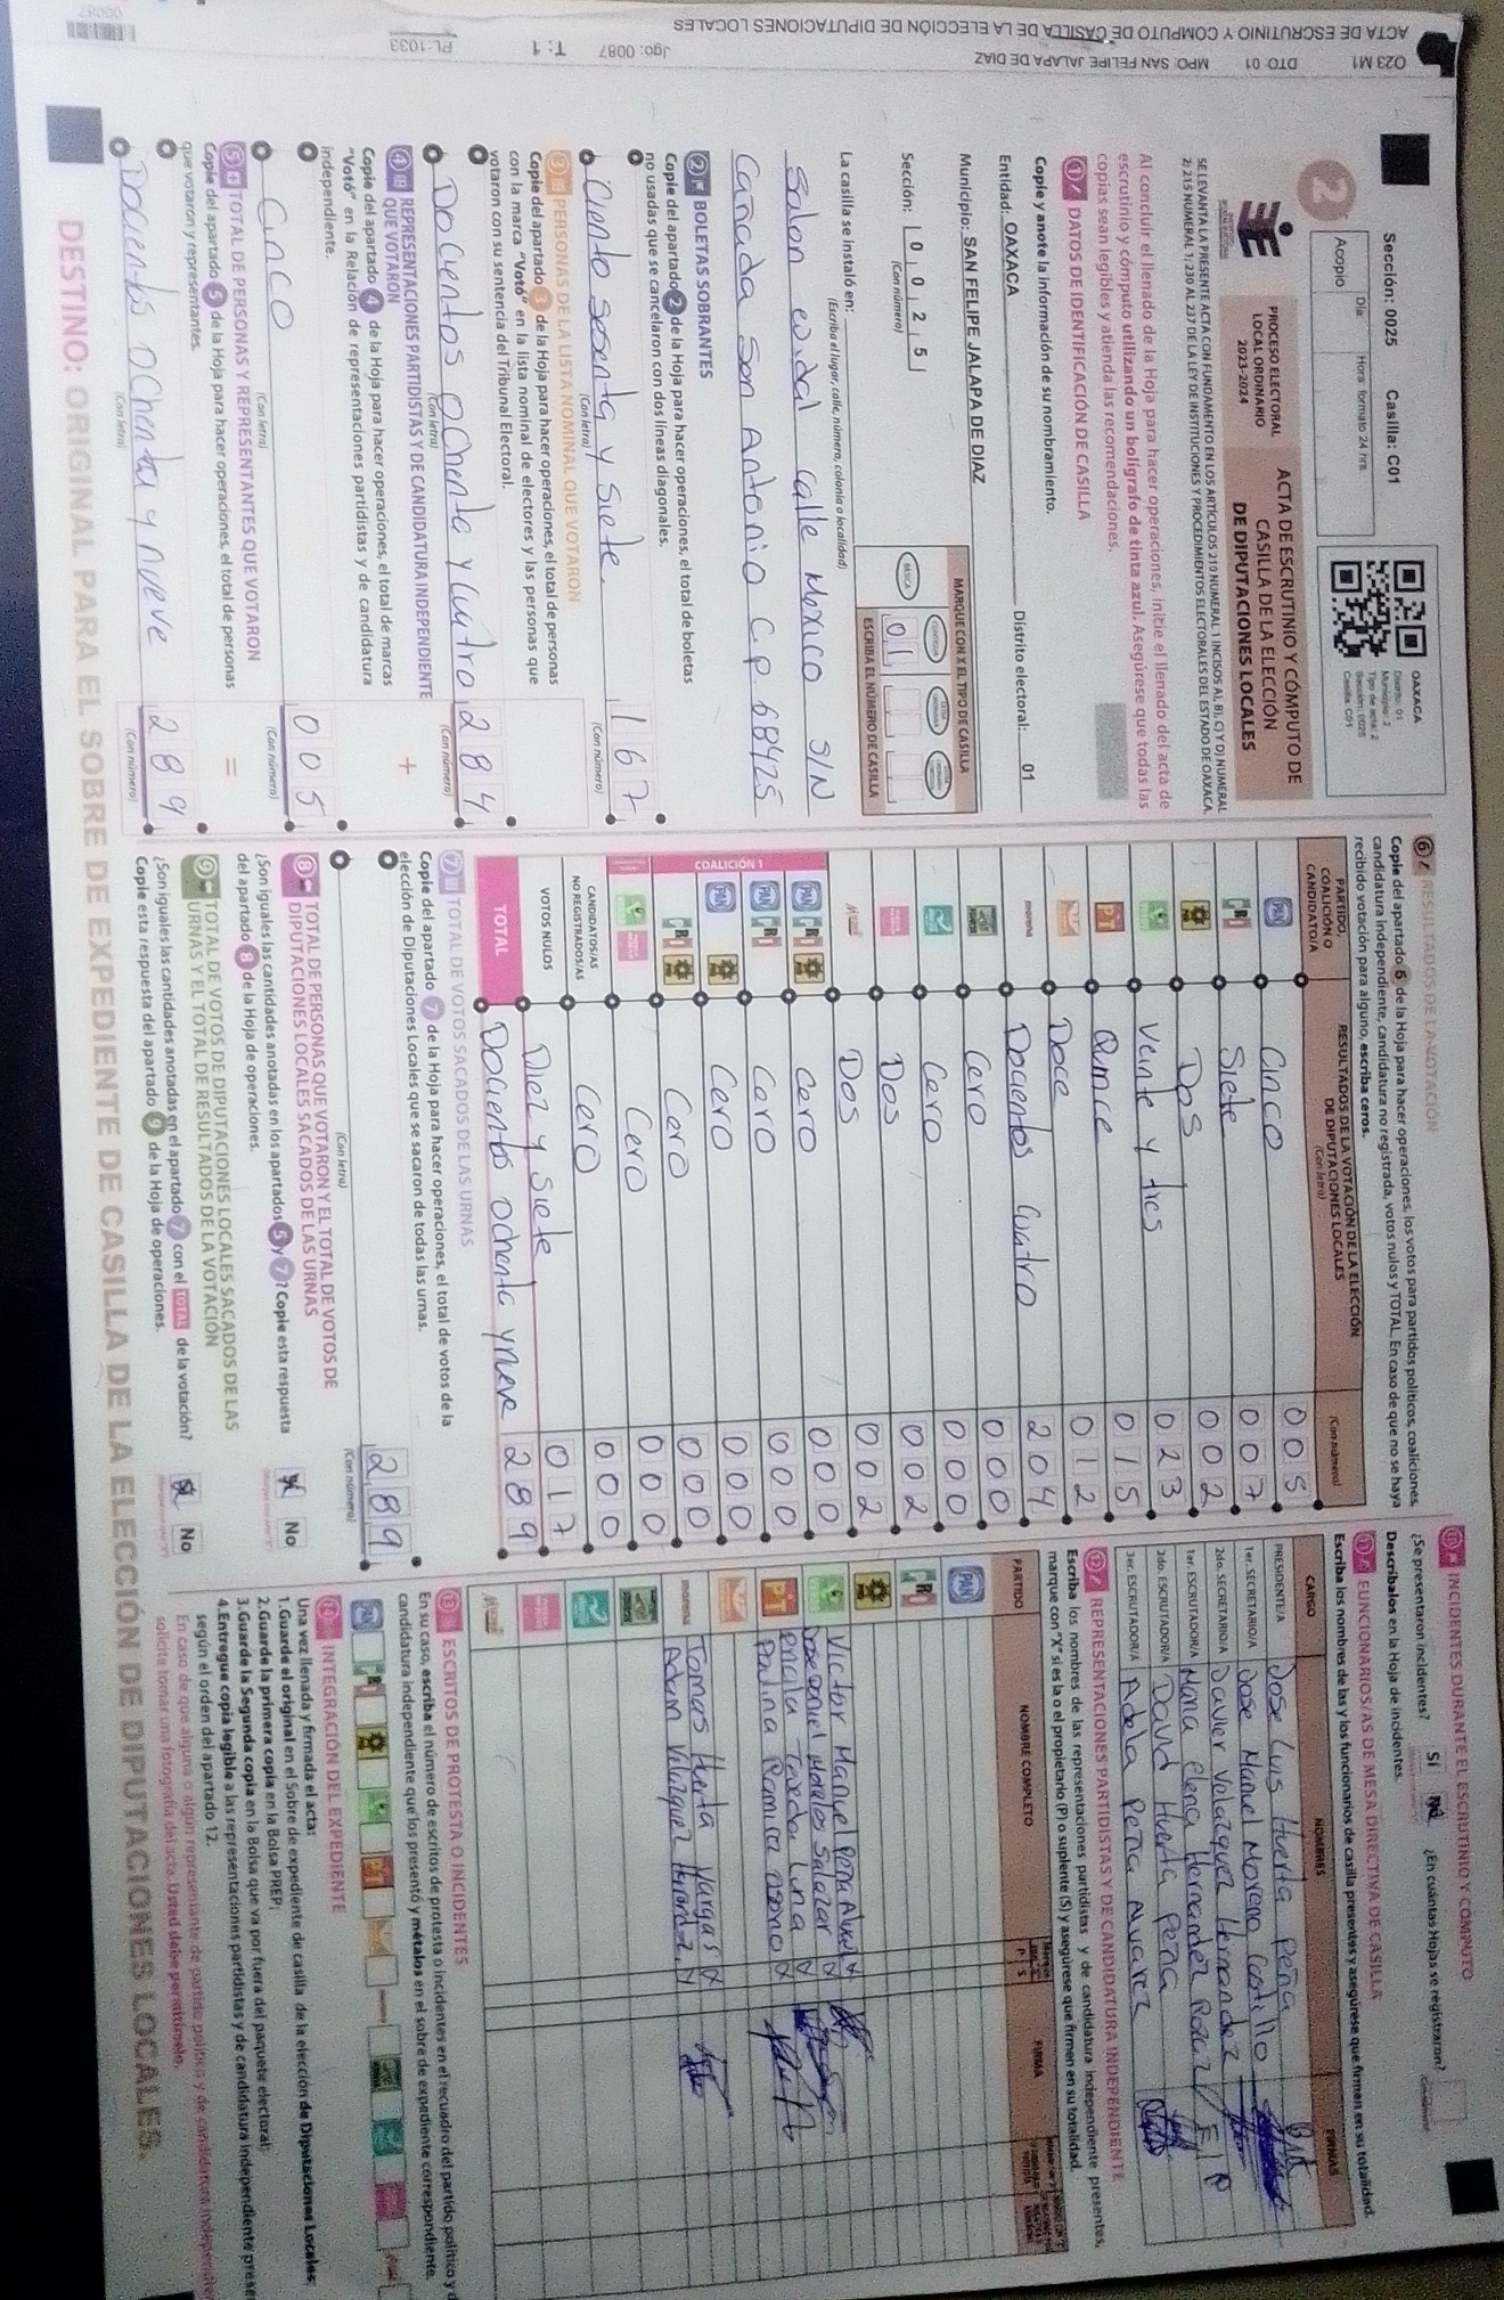 Sección: 0025 Casilla: C01
Acopio
Día:
Hora: formato 24 hrs.
OAXACA
Distrito: 01
Municipio: 2
Tipo de acta: 2
Sección: 0025
Casilla: C01
2
PROCESO ELECTORAL
LOCAL ORDINARIO
2023-2024
ACTA DE ESCRUTINIO Y CÓMPUTO DE
CASILLA DE LA ELECCIÓN
DE DIPUTACIONES LOCALES
SE LEVANTA LA PRESENTE ACTA CON FUNDAMENTO EN LOS ARTÍCULOS 219 NUMERAL 1 INCISOS A), B), C) Y D) NUMERAL
2; 215 NUMERAL 1; 230 AL 237 DE LA LEY DE INSTITUCIONES Y PROCEDIMIENTOS ELECTORALES DEL ESTADO DE OAXACA.
Al concluir el llenado de la Hoja para hacer operaciones, inicie el llenado del acta de
escrutinio y cómputo utilizando un bolígrafo de tinta azul. Asegúrese que todas las
copias sean legibles y atienda las recomendaciones.
1 DATOS DE IDENTIFICACIÓN DE CASILLA
Copie y anote la información de su nombramiento.
Entidad: OAXACA Distrito electoral: 01
Municipio: SAN FELIPE JALAPA DE DIAZ
Sección: 0 0 2 5
(Con número)
MARQUE CON X EL TIPO DE CASILLA
BÁSICA
ESCRIBA EL NÚMERO DE CASILLA
0 1
La casilla se instaló en:
(Escriba el lugar, calle, número, colonia o localidad)
Salon exidal calle Mexico S/N
Cañada San Antonio C.P. 68425
2 BOLETAS SOBRANTES
Copie del apartado 2 de la Hoja para hacer operaciones, el total de boletas
no usadas que se cancelaron con dos líneas diagonales.
Ciento sesenta y siete 1 6 7
(Con letra) (Con número)
3 PERSONAS DE LA LISTA NOMINAL QUE VOTARON
Copie del apartado 3 de la Hoja para hacer operaciones, el total de personas
con la marca "Votó" en la lista nominal de electores y las personas que
votaron con su sentencia del Tribunal Electoral.
Docientos ochenta y cuatro 2 8 4
(Con letra) (Con número)
4 REPRESENTACIONES PARTIDISTAS Y DE CANDIDATURA INDEPENDIENTE
QUE VOTARON +
Copie del apartado 4 de la Hoja para hacer operaciones, el total de marcas
"Votó" en la Relación de representaciones partidistas y de candidatura
independiente.
Cinco 0 0 5
(Con letra) (Con número)
5 TOTAL DE PERSONAS Y REPRESENTANTES QUE VOTARON =
Copie del apartado 5 de la Hoja para hacer operaciones, el total de personas
que votaron y representantes.
Docientos ochenta y nueve 2 8 9
(Con letra) (Con número)
6 RESULTADOS DE LA VOTACIÓN
Copie del apartado 6 de la Hoja para hacer operaciones, los votos para partidos políticos, coaliciones,
candidatura independiente, candidatura no registrada, votos nulos y TOTAL. En caso de que no se haya
recibido votación para alguno, escriba ceros.
PARTIDO,
COALICIÓN O
CANDIDATO/A
RESULTADOS DE LA VOTACIÓN DE LA ELECCIÓN
DE DIPUTACIONES LOCALES
(Con letra)
(Con número)
PAN Cinco 0 0 5
PRI Siete 0 0 7
PRD Dos 0 0 2
Veinte y tres 0 2 3
PT Quince 0 1 5
Doce 0 1 2
morena Docientos Cuatro 2 0 4
Cero 0 0 0
Cero 0 0 0
Dos 0 0 2
Dos 0 0 2
COALICIÓN 1
PAN PRI PRD Cero 0 0 0
PAN PRI Cero 0 0 0
PAN PRD Cero 0 0 0
PRI PRD Cero 0 0 0
Cero 0 0 0
CANDIDATOS/AS
NO REGISTRADOS/AS Cero 0 0 0
VOTOS NULOS Diez y siete 0 1 7
TOTAL Docientos ochenta y nueve 2 8 9
7 TOTAL DE VOTOS SACADOS DE LAS URNAS
Copie del apartado 7 de la Hoja para hacer operaciones, el total de votos de la
elección de Diputaciones Locales que se sacaron de todas las urnas.
2 8 9
(Con letra) (Con número)
8 TOTAL DE PERSONAS QUE VOTARON Y EL TOTAL DE VOTOS DE
DIPUTACIONES LOCALES SACADOS DE LAS URNAS
¿Son iguales las cantidades anotadas en los apartados 5 y 7? Copie esta respuesta
del apartado 8 de la Hoja de operaciones.
Sí No
9 TOTAL DE VOTOS DE DIPUTACIONES LOCALES SACADOS DE LAS
URNAS Y EL TOTAL DE RESULTADOS DE LA VOTACIÓN
¿Son iguales las cantidades anotadas en el apartado 7 con el TOTAL de la votación?
Copie esta respuesta del apartado 9 de la Hoja de operaciones.
Sí No
10 INCIDENTES DURANTE EL ESCRUTINIO Y CÓMPUTO
¿Se presentaron incidentes? Sí No ¿En cuántas Hojas se registraron?
Descríbalos en la Hoja de incidentes.
11 FUNCIONARIOS/AS DE MESA DIRECTIVA DE CASILLA
Escriba los nombres de las y los funcionarios de casilla presentes y asegúrese que firmen en su totalidad.
CARGO NOMBRES FIRMAS
PRESIDENTE/A Jose Luis Huerta Peña
1er. SECRETARIO/A Jose Manuel Moreno Castillo
2do. SECRETARIO/A Javier Velazquez Hernandez
1er. ESCRUTADOR/A Maria Elena Hernandez
2do. ESCRUTADOR/A David Huerta Peña
3er. ESCRUTADOR/A Adela Peña Alvarez
12 REPRESENTACIONES PARTIDISTAS Y DE CANDIDATURA INDEPENDIENTE
Escriba los nombres de las representaciones partidistas y de candidatura independiente presentes,
marque con "X" si es la o el propietario (P) o suplente (S) y asegúrese que firmen en su totalidad.
PARTIDO NOMBRE COMPLETO P S FIRMA
PAN
PRI
PRD Victor Manuel Peña
Morelos Salazar
PT
Paulina Ramirez
morena Tomas Huerta Vargas
Adan Velazquez
13 ESCRITOS DE PROTESTA O INCIDENTES
En su caso, escriba el número de escritos de protesta o incidentes en el recuadro del partido político y
candidatura independiente que los presentó y métalos en el sobre de expediente correspondiente.
14 INTEGRACIÓN DEL EXPEDIENTE
Una vez llenada y firmada el acta:
1.Guarde el original en el Sobre de expediente de casilla de la elección de Diputaciones Locales;
2.Guarde la primera copia en la Bolsa PREP;
3.Guarde la Segunda copia en la Bolsa que va por fuera del paquete electoral;
4.Entregue copia legible a las representaciones partidistas y de candidatura independiente
según el orden del apartado 12.
En caso de que alguna o algún representante de partido político y de candidatura independiente
solicite tomar una fotografía del acta. Usted debe permitírselo.
DESTINO: ORIGINAL PARA EL SOBRE DE EXPEDIENTE DE CASILLA DE LA ELECCIÓN DE DIPUTACIONES LOCALES.
O23 M1 DTO: 01 MPO: SAN FELIPE JALAPA DE DIAZ Jgo: 0087 T: 1 PL: 1033
ACTA DE ESCRUTINIO Y COMPUTO DE CASILLA DE LA ELECCIÓN DE DIPUTACIONES LOCALES